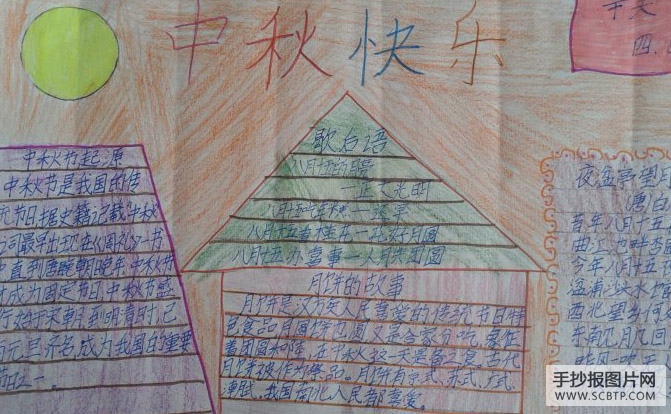 中秋快乐
四.
中秋节起源
中秋节是我国的传
元节日据史籍记载“中秋
一词最早出现在《周礼》一书
中直到唐朝初年,中秋节
成为固定节日中秋节盛
行始于宋朝,到明清时,已
与元旦齐名,成为我国的重要
节日之一。
歇后语
八月十五的月亮
一正大光明
八月十五
八月十五看桂花一花好月圆
八月十五办喜事一人月共团圆
月饼的故事
月饼是汉族人民喜爱的传统节日特
色食品,月圆饼也圆,又是合家分吃,象征
着团圆和睦,在中秋这一天是必备之食。古代
月饼被作为祭品。月饼有京式、苏式、广式、
潮式,我国南北人民都喜爱。
夜湓亭望月
(唐白
昔年八月十五
曲江池畔杏园
今年八月十五
湓浦沙头水馆
西北望乡何
东南见月几回
昨风一吹无
手抄报图片网
WWW.SCBTP.COM